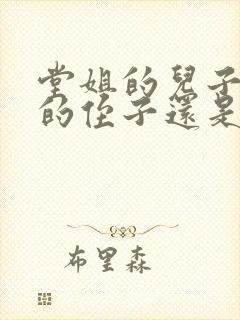 堂姐的兒子
的侄子還是
布里森